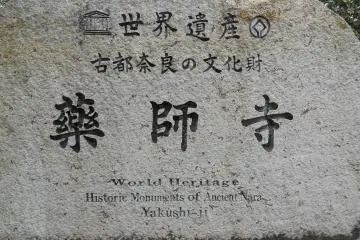 世界遺産
古都奈良の文化財
藥師寺
World Heritage
Historic Monuments of Ancient Nara
Yakushi-ji